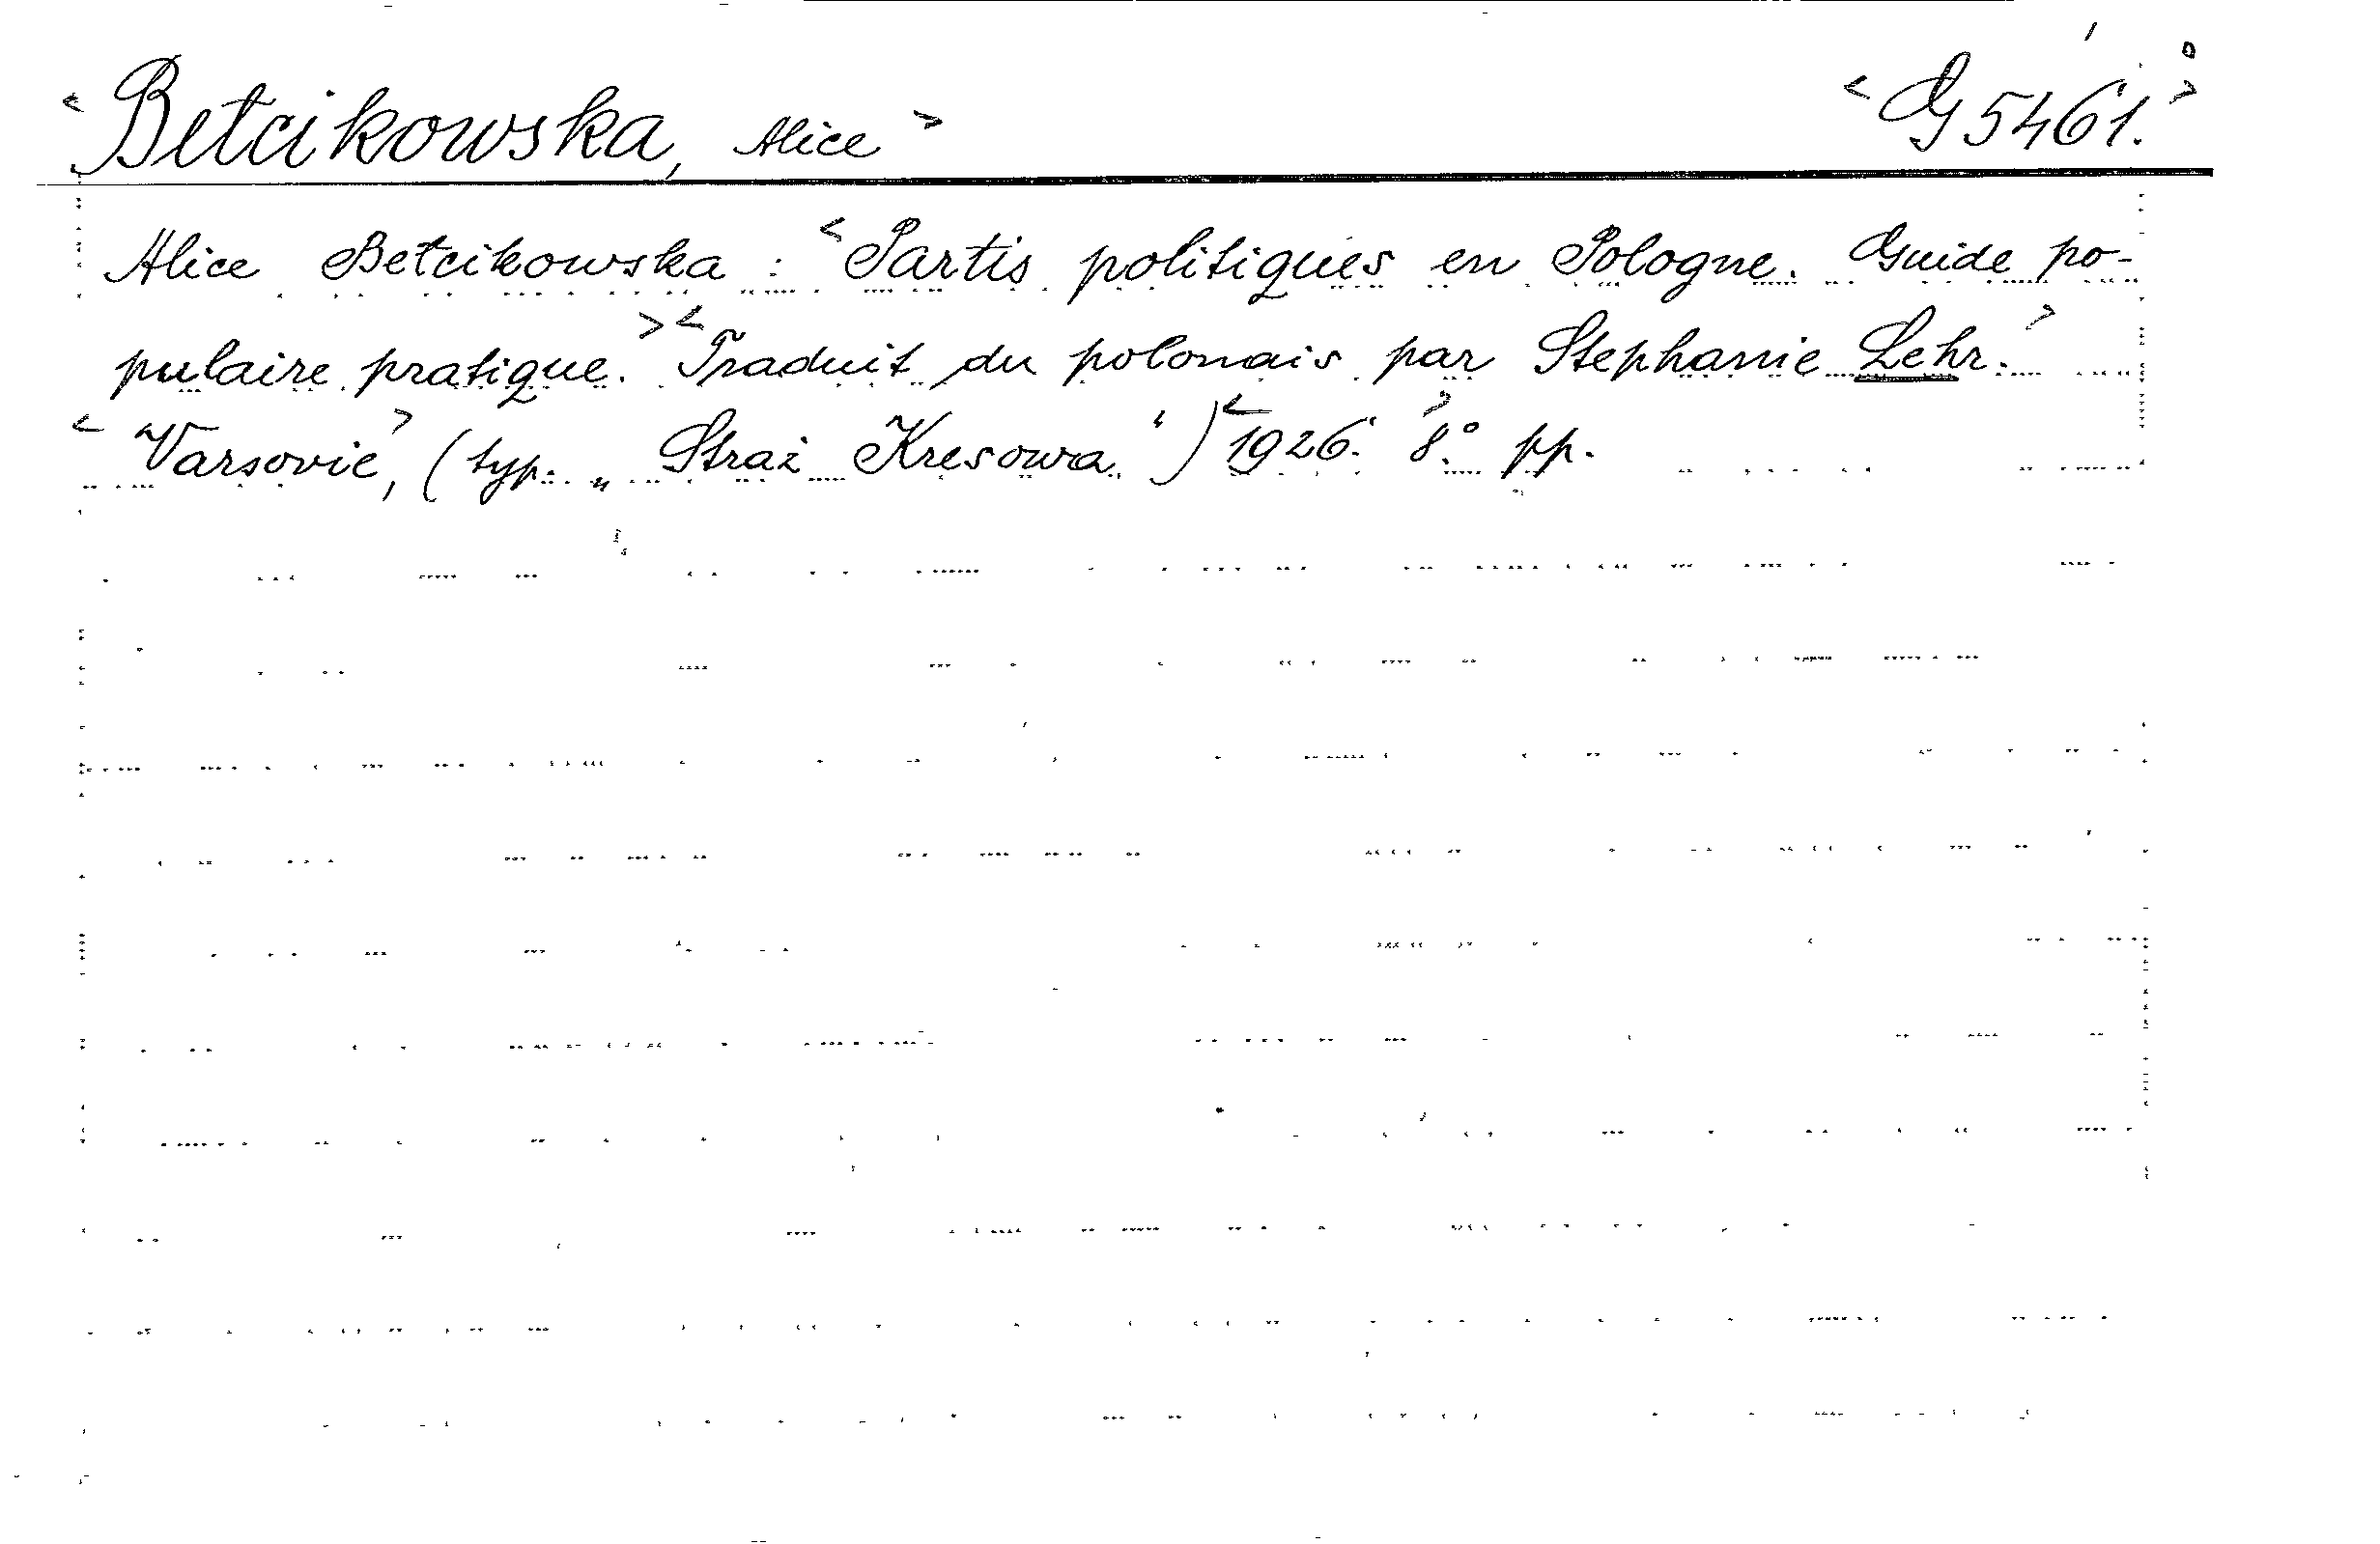 <Betcikowska, Alice> <G 5461.>
Alice Betcikowska : <Partis politiques en Pologne. Guide po-
pulaire pratique.> <Traduit du polonais par Stephanie Lehr.>
<Varsovie>, (typ. „Straż Kresowa“) <1926.> 8.° pp.